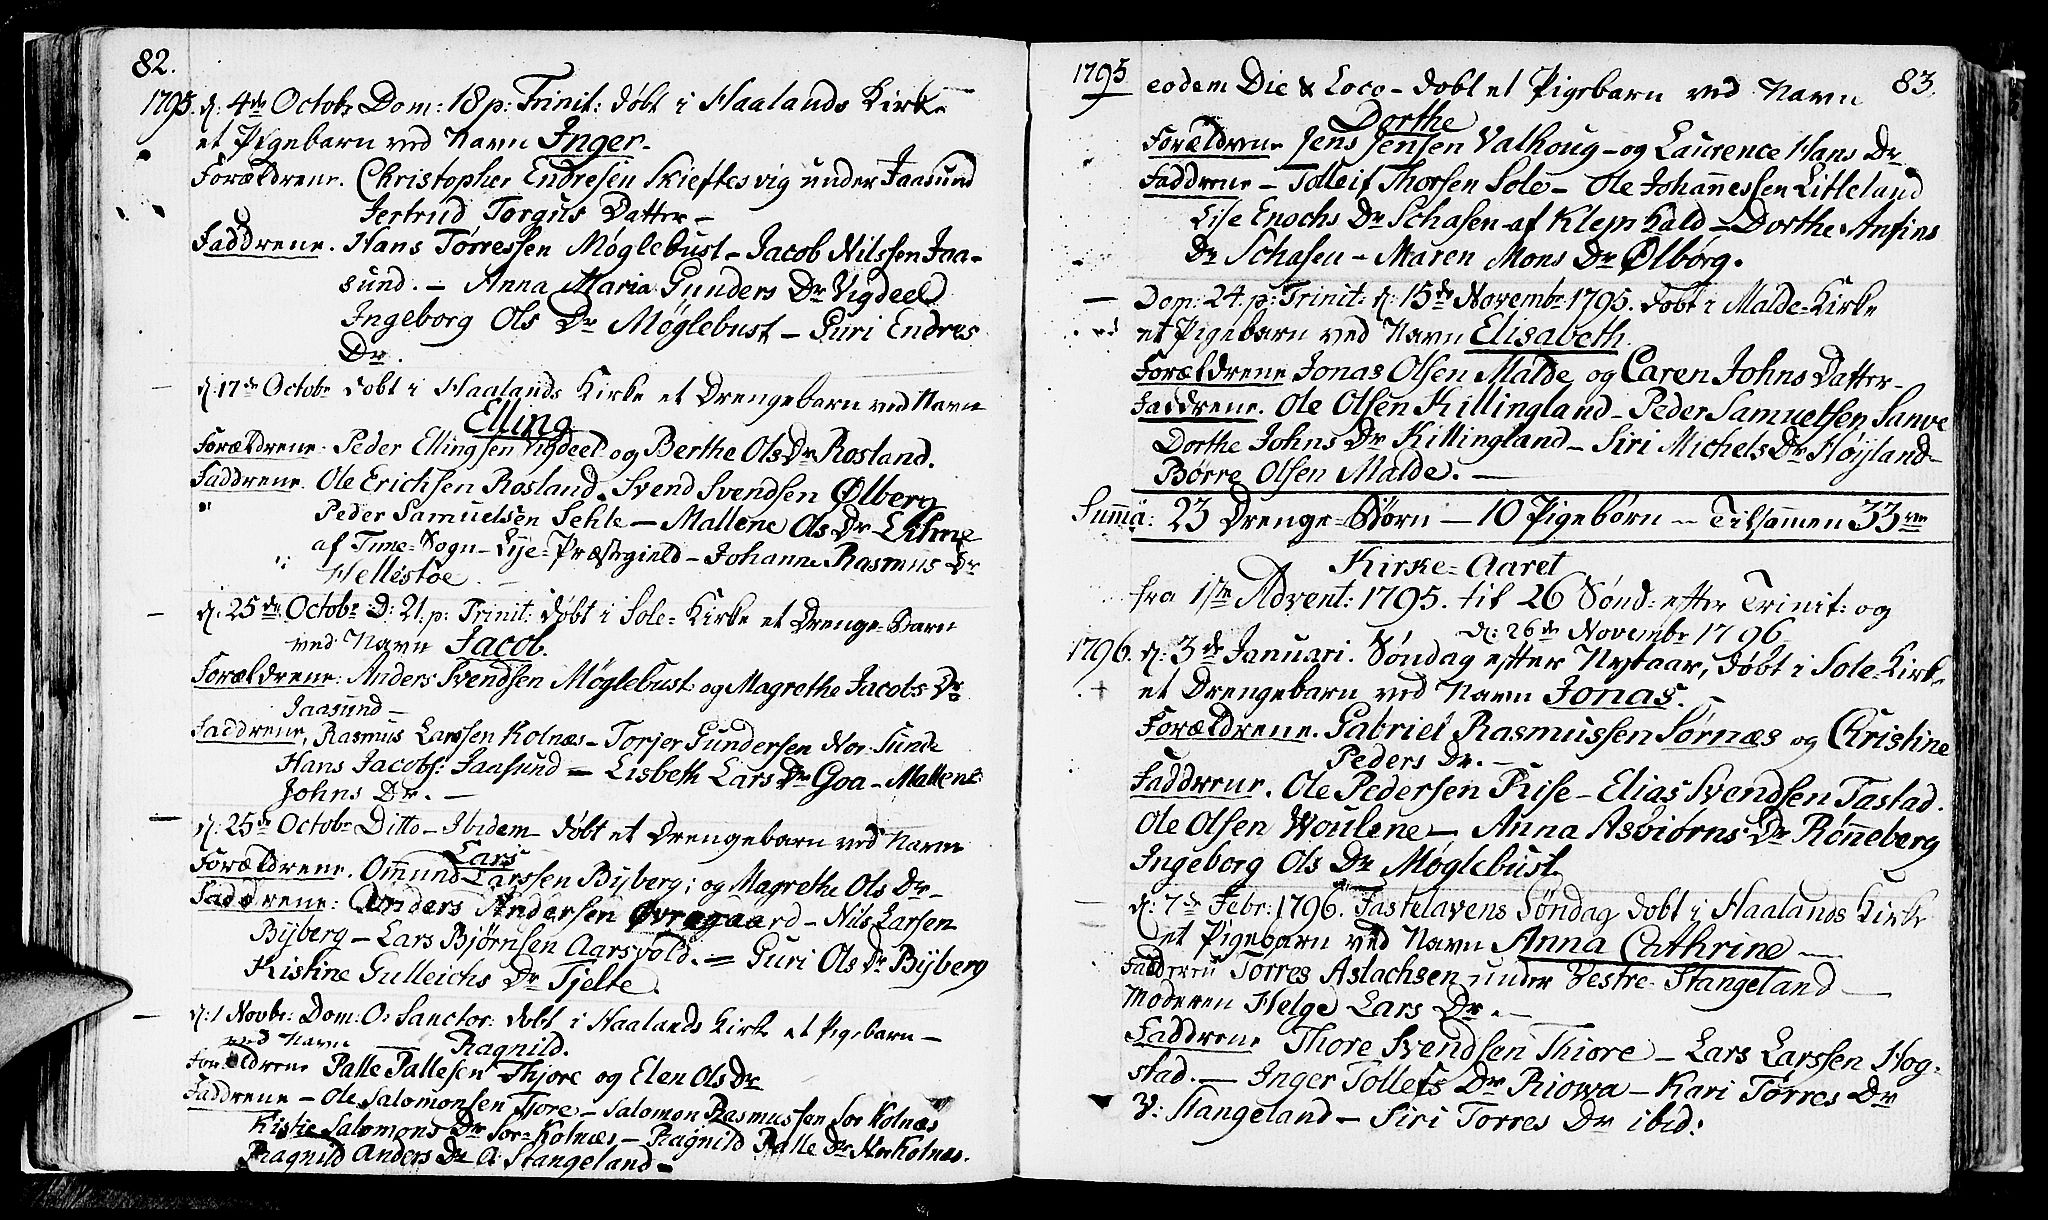 82.
1795. d: 4de Octobr Dom: 18 p: Trinit: døbt i Haalands Kirke
et Pigebarn ved Navn Inger.
Forældrene. Christopher Endresen Skieftesvig under Jaasund
Jertrud Torgus Datter –
Faddrene. Hans Tørressen Møglebust – Jacob Nilssen Jaa-
sund. – Anna Maria Gunders Dr Vigdeel
Ingeborg Ols Dr Møglebust – Guri Endres
Dr.
d: 17de Octobr døbt i Haalands Kirke et Drengebarn ved Navn
Elling
Forældrene: Peder Ellingsen Vigdeel og Berthe Ols Dr Rosland.
Faddrene. Ole Erichsen Rosland. Svend Svendsen Ølberg
Peder Samuelsen Sehle – Mallene Ols Dr
af Time-Sogn – Lye-Præstegield – Johanne Rasmus Dr
Hellestøe.
d: 25de Octobr D: 21. p: Trinit: døbt i Sole-Kirke et Drenge-Barn
ved Navn Jacob.
Forældrene: Anders Svendsen Møglebust og Magrethe Jacobs Dr
Jaasund –
Faddrene, Rasmus Larssen Kolnæs – Torjer Gundersen Nor: Sunde
Hans Jacobs: Jaasund = Lisbeth Lars Dr Goa – Mallene
Johns Dr. –
d: 25de Octobr Ditto – Ibidem døbt et Drengebarn ved Navn
Lars
Forældrene. Omund Larssen Byberg; og Magrethe Ols Dr –
Faddrene: Anders Andersen Øvregaard – Nils Larsen
Byberg – Lars Bjørnsen Aarsvold. = Guri Ols Dr Byberg
Kistine Gulleichs Dr Tjelte.
d: 1 Novbr: Dom: O: Sanctor: døbt i Haalands Kirke et Pigebarn –
ved Navn — Ragnild.
Forældrene Palle Pallesen Thjore og Elen Ols Dr
Faddrene – Ole Salomonsen Tjore – Salomon Rasmussen Sør Kolnæs
Kistie Salomons Dr Sør-Kolnæs – Ragnild Palle Dr Nor Kolnæs.
Ragnild Anders Dr A: Stangeland –
1795 83.
eodem Die & Loco – døbt et Pigebarn ved Navn
Dorthe
Forældrene Jens Jensen Valhoug – og Laurence Hans Dr
Faddrene – Tolleif Thorsen Sole – Ole Johannessen Litleland
Lise Enochs Dr Schasen af Klep Kald – Dorthe Anfins
Dr Schasen – Maren Mons Dr Ølbørg.
Dom: 24. p: Trinit: d: 15de Novembr 1795. døbt i Malde-Kirke
et Pigebarn ved Navn Elisabeth.
Forældrene Jonas Olsen Malde og Caren Johns Datter –
Faddrene. Ole Olsen Killingland – Peder Samuelsen Sanve
Dorthe Johns Dr Killingland – Siri Michels Dr Høyland –
Børre Olsen Malde. –
Summa: 23 Drenge-Børn – 10 Pigebørn – Tilsammen 33
Kirke-Aaret
fra 1ste Advent: 1795. til 26 Sønd: efter Trinit: og
d: 26de Novembr 1796
1796. d: 3de Januari. Søndag efter Nytaar, døbt i Sole-Kirke
et Drengebarn ved Navn Jonas. –
Forældrene. Gabriel Rasmussen Sørnæs og Christine
Peders Dr. –
Faddrene. Ole Pedersen Risе – Elias Svendsen Tastad.
Ole Olsen Woulene – Anna Asbiørns Dr Rønneberg
Ingeborg Ols Dr Møglebust.
d: 7de Febr: 1796. Fastelavens Søndag døbt i Haalands Kirke
et Pigebarn ved Navn Anna Cathrine –
Faderen Tørres Aslachsen under Vestre-Stangeland –
Moderen Helge Lars Dr. –
Faddrene Thore Svendsen Thiore – Lars Larssen Hog-
stad. – Inger Tollefs Dr Riowa – Kari Tørres Dr
V: Stangeland – Siri Torres Dr ibid: